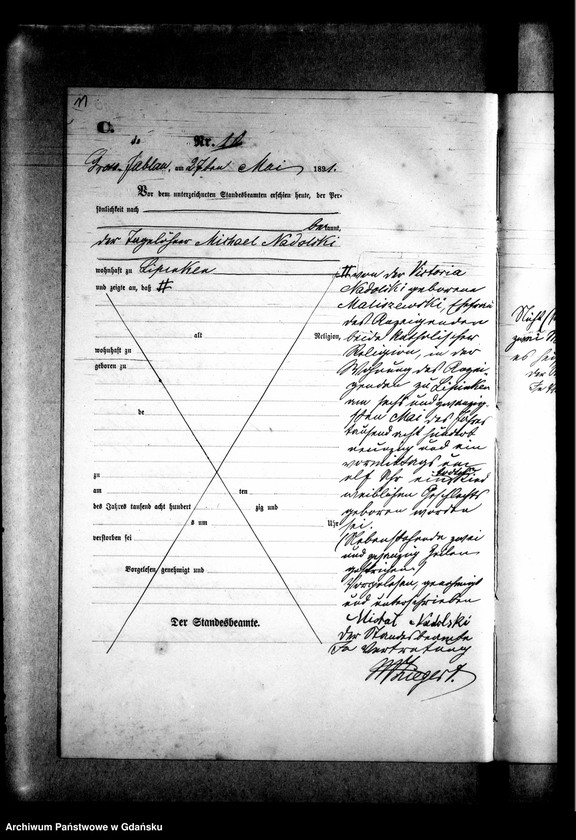 11
C.
Nr. 12
Gross-Jablau, am 27ten Mai 1891.
Vor dem unterzeichneten Standesbeamten erschien heute, der Per-
sönlichkeit nach
bekannt,
der Tagelöhner Michael Nadolski
wohnhaft zu Lipinken
und zeigte an, daß #
alt Religion,
wohnhaft zu
geboren zu
de
zu
am ten
des Jahres tausend acht hundert zig und
s um Uhr
verstorben sei
Vorgelesen, genehmigt und
Der Standesbeamte.
# von der Victoria
Nadolski geborene
Maliszewski, Ehefrau
des Anzeigenden
beide katholischer
Religion, in der
Wohnung des Anzei-
genden zu Lipinken
am sechs und zwanzig-
sten Mai des Jahres
tausend acht hundert
neunzig und ein
vormittags um
elf Uhr ein Kind
todtes
weiblichen Geschlechts
geboren worden
sei.
(Nebenstehende zwei
und zwanzig Zeilen
gestrichen.
Vorgelesen, genehmigt
und unterschrieben
Michał Nadolski
Der Standesbeamte
In Vertretung
zwei
es sei
der